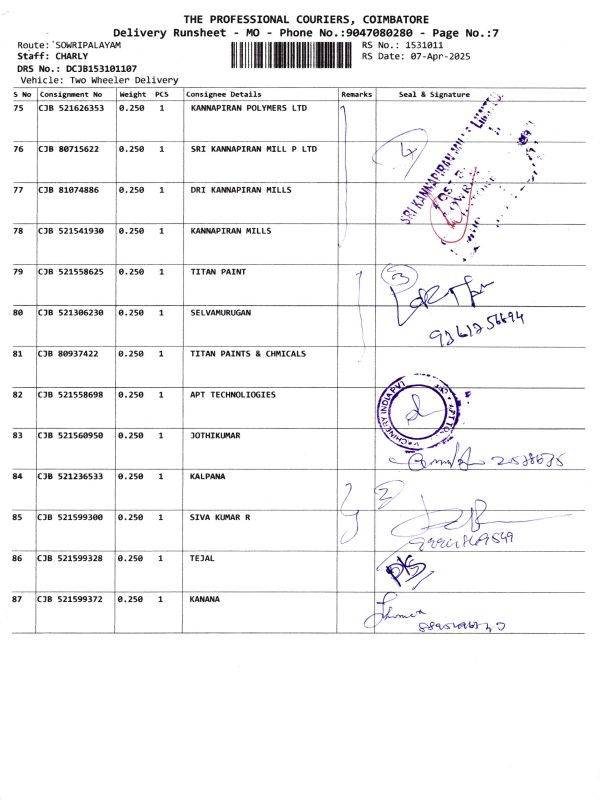 THE PROFESSIONAL COURIERS, COIMBATORE
Delivery Runsheet - MO - Phone No.:9047080280 - Page No.:7
Route: SOWRIPALAYAM RS No.: 1531011
Staff: CHARLY RS Date: 07-Apr-2025
DRS No.: DCJB153101107
Vehicle: Two Wheeler Delivery
S No Consignment No Weight PCS Consignee Details Remarks Seal & Signature
75 CJB 521626353 0.250 1 KANNAPIRAN POLYMERS LTD
76 CJB 80715622 0.250 1 SRI KANNAPIRAN MILL P LTD 4
SRI KANNAPIRAN MILLS LIMITED
77 CJB 81074886 0.250 1 DRI KANNAPIRAN MILLS
78 CJB 521541930 0.250 1 KANNAPIRAN MILLS
79 CJB 521558625 0.250 1 TITAN PAINT 3
80 CJB 521306230 0.250 1 SELVAMURUGAN
81 CJB 80937422 0.250 1 TITAN PAINTS & CHMICALS
82 CJB 521558698 0.250 1 APT TECHNOLIOGIES
83 CJB 521560950 0.250 1 JOTHIKUMAR
84 CJB 521236533 0.250 1 KALPANA 2
85 CJB 521599300 0.250 1 SIVA KUMAR R
86 CJB 521599328 0.250 1 TEJAL
87 CJB 521599372 0.250 1 KANANA